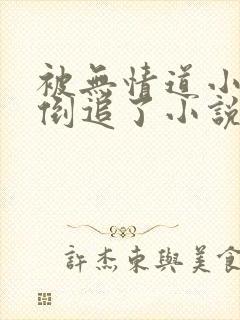 被無情道小
倒追了小說
許杰東與美食